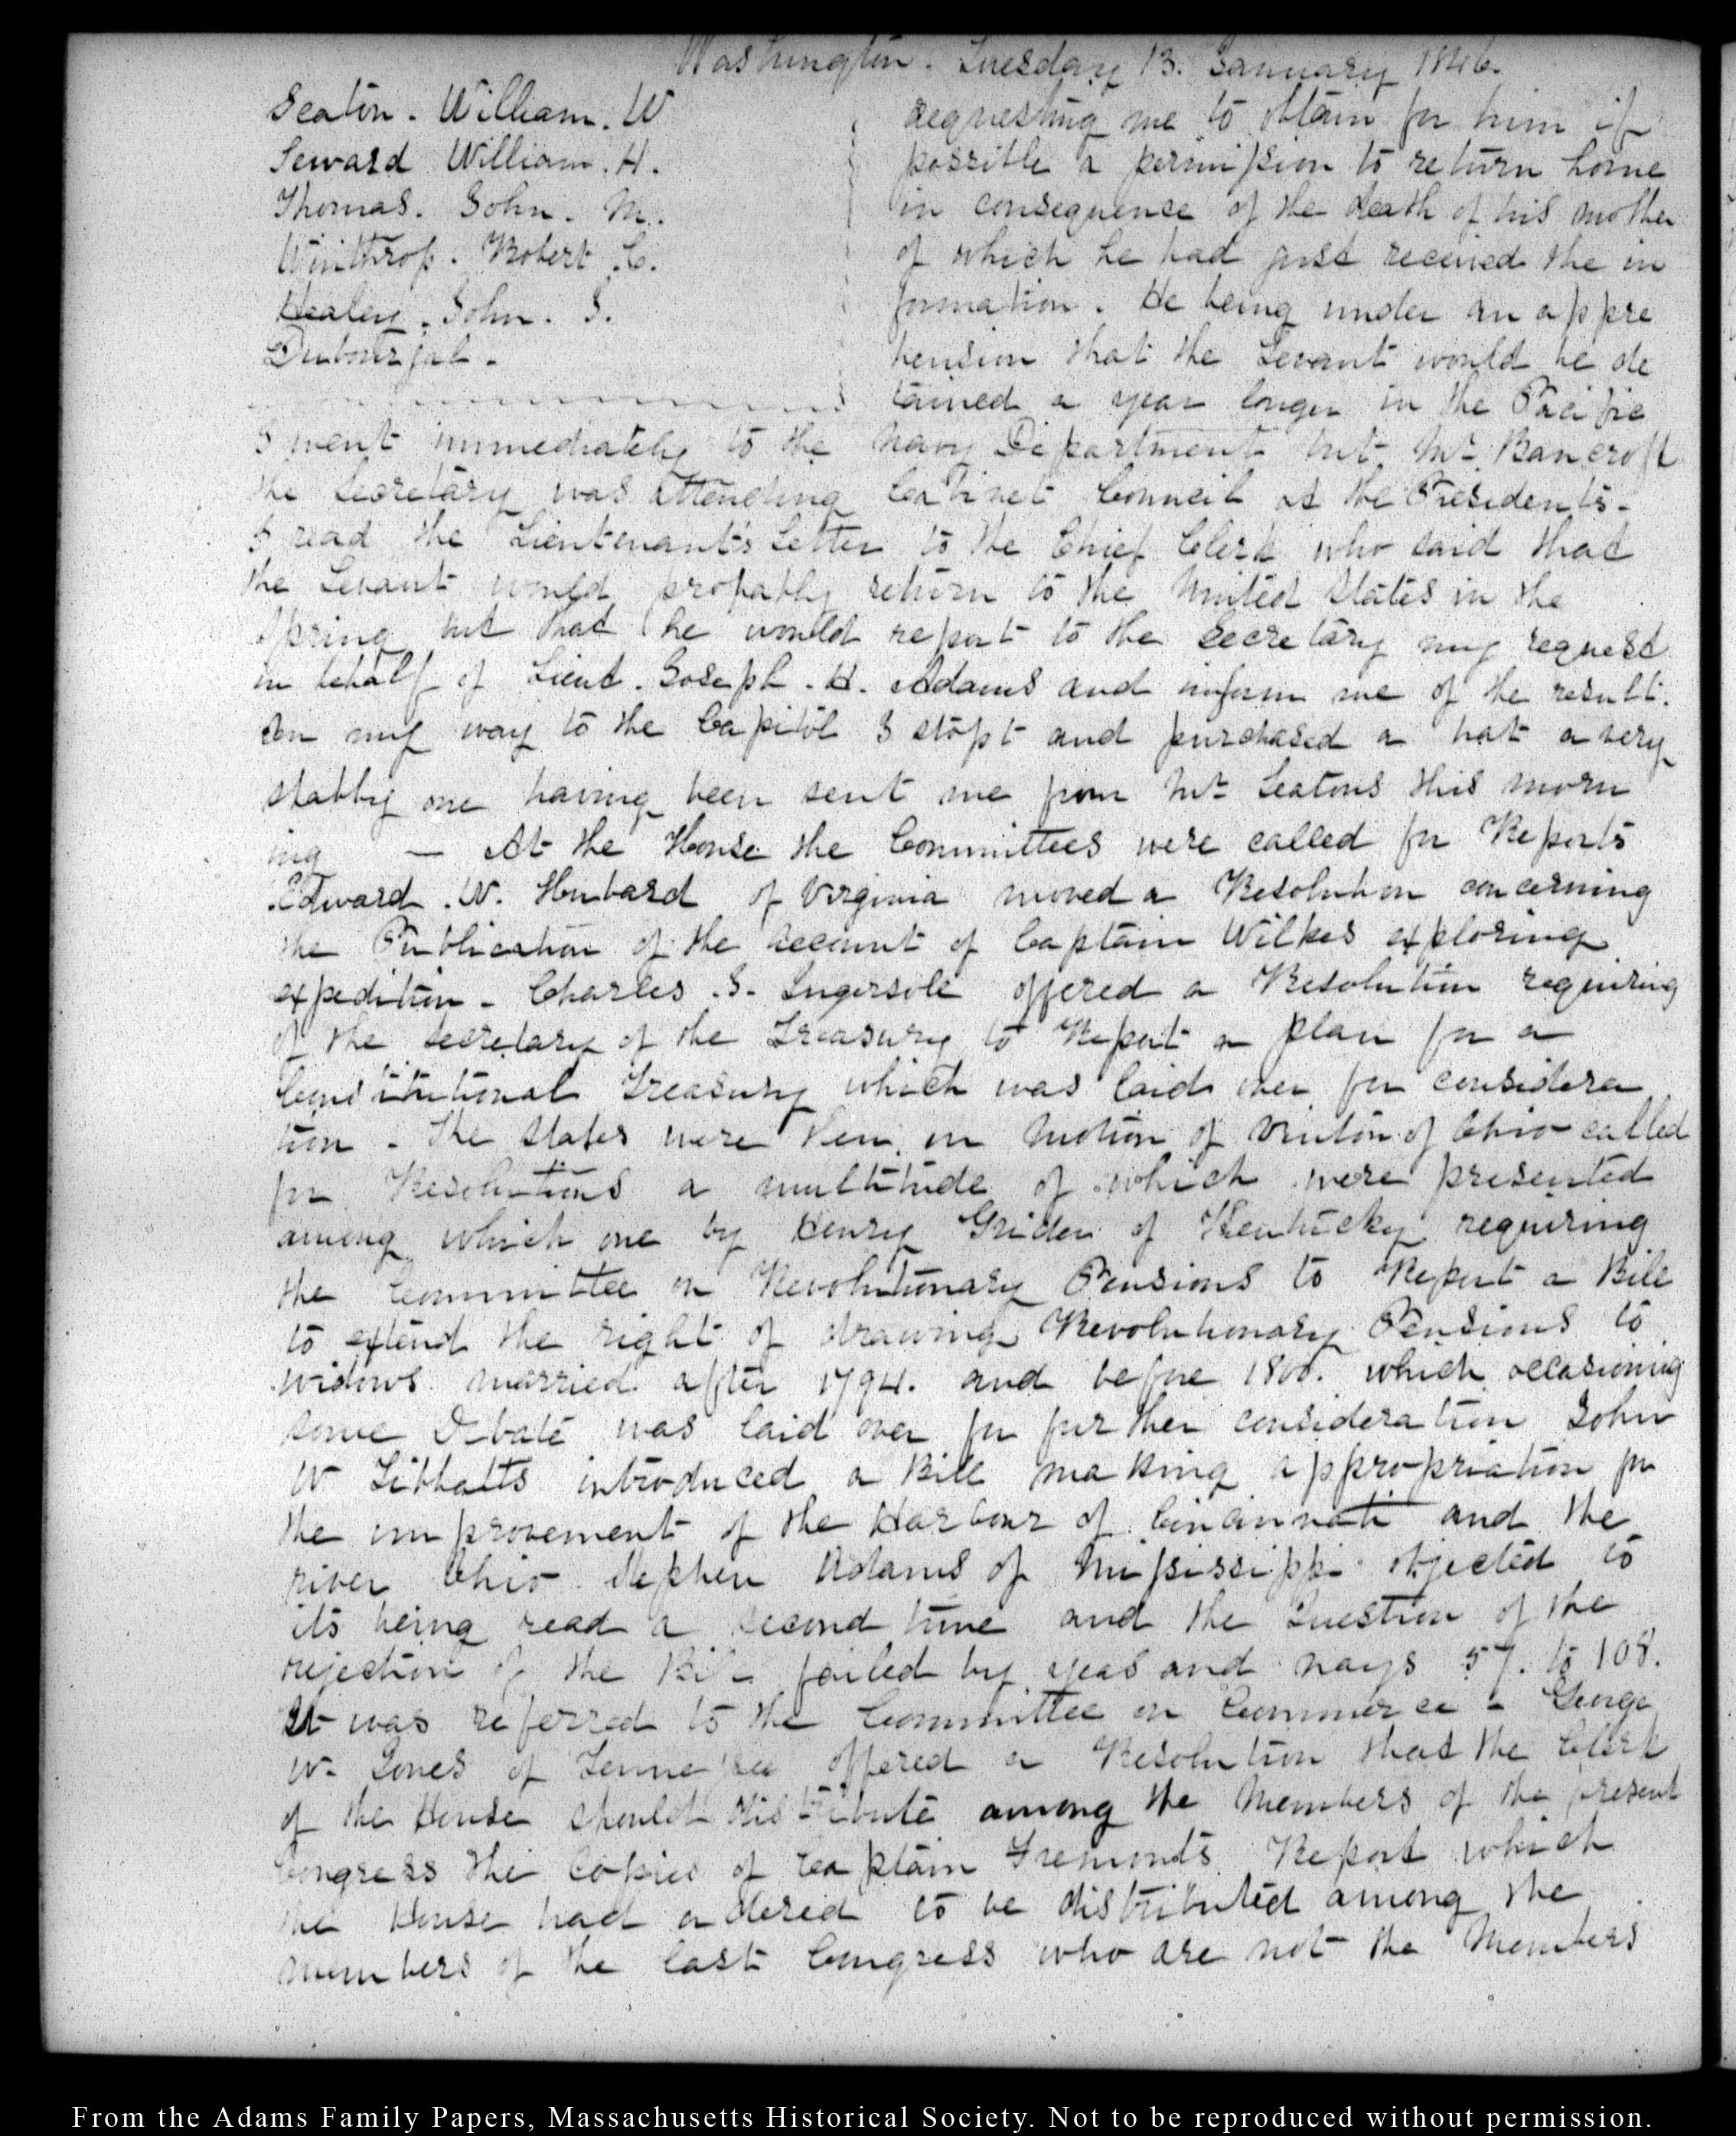 Washington. Tuesday 13. January 1846.
Seaton. William. W
Seward William. H.
Thomas. John. M.
Winthrop. Robert. C.
Healey. John. J.
Dubourjal.
requesting me to obtain for him if
possible a permission to return home
in consequence of the death of his mother
of which he had just received the in
formation. He being under an appre
hension that the Levant would be de
tained a year longer in the Pacific
I went immediately to the Navy Department but Mr. Bancroft
the Secretary was attending Cabinet Council at the Presidents.
I read the Lieutenant's Letter to the Chief Clerk who said that
the Levant would probably return to the United States in the
Spring but that he would report to the Secretary my request
in behalf of Lieut. Joseph. H. Adams and inform me of the result.
On my way to the Capitol I stopt and purchased a hat a very
shabby one having been sent me from Mr. Seatons this morn
ing — At the House the Committees were called for Reports
Edward. W. Hubard of Virginia moved a Resolution concerning
the Publication of the account of Captain Wilkes exploring
expedition. Charles. J. Ingersoll offered a Resolution requiring
of the Secretary of the Treasury to Report a plan for a
Constitutional Treasury which was laid over for considera
tion. The States were then on motion of Vinton of Ohio called
for Resolutions a multitude of which were presented
among which one by Henry Grider of Kentucky requiring
the Committee on Revolutionary Pensions to Report a Bill
to extend the right of drawing Revolutionary Pensions to
widows married after 1794. and before 1800. which occasioning
some Debate was laid over for further consideration John
W Tibbatts introduced a Bill making appropriation for
the improvement of the Harbour of Cincinnati and the
river Ohio. Stephen Adams of Mississippi objected to
its being read a second time and the Question of the
rejection of the Bill failed by yeas and nays 57. to 108.
It was referred to the Committee on Commerce - George
W. Jones of Tennessee offered a Resolution that the Clerk
of the House should distribute among the Members of the present
Congress the Copies of Captain Fremonts Report which
the House had ordered to be distributed among the
members of the last Congress who are not the Members
From the Adams Family Papers, Massachusetts Historical Society. Not to be reproduced without permission.